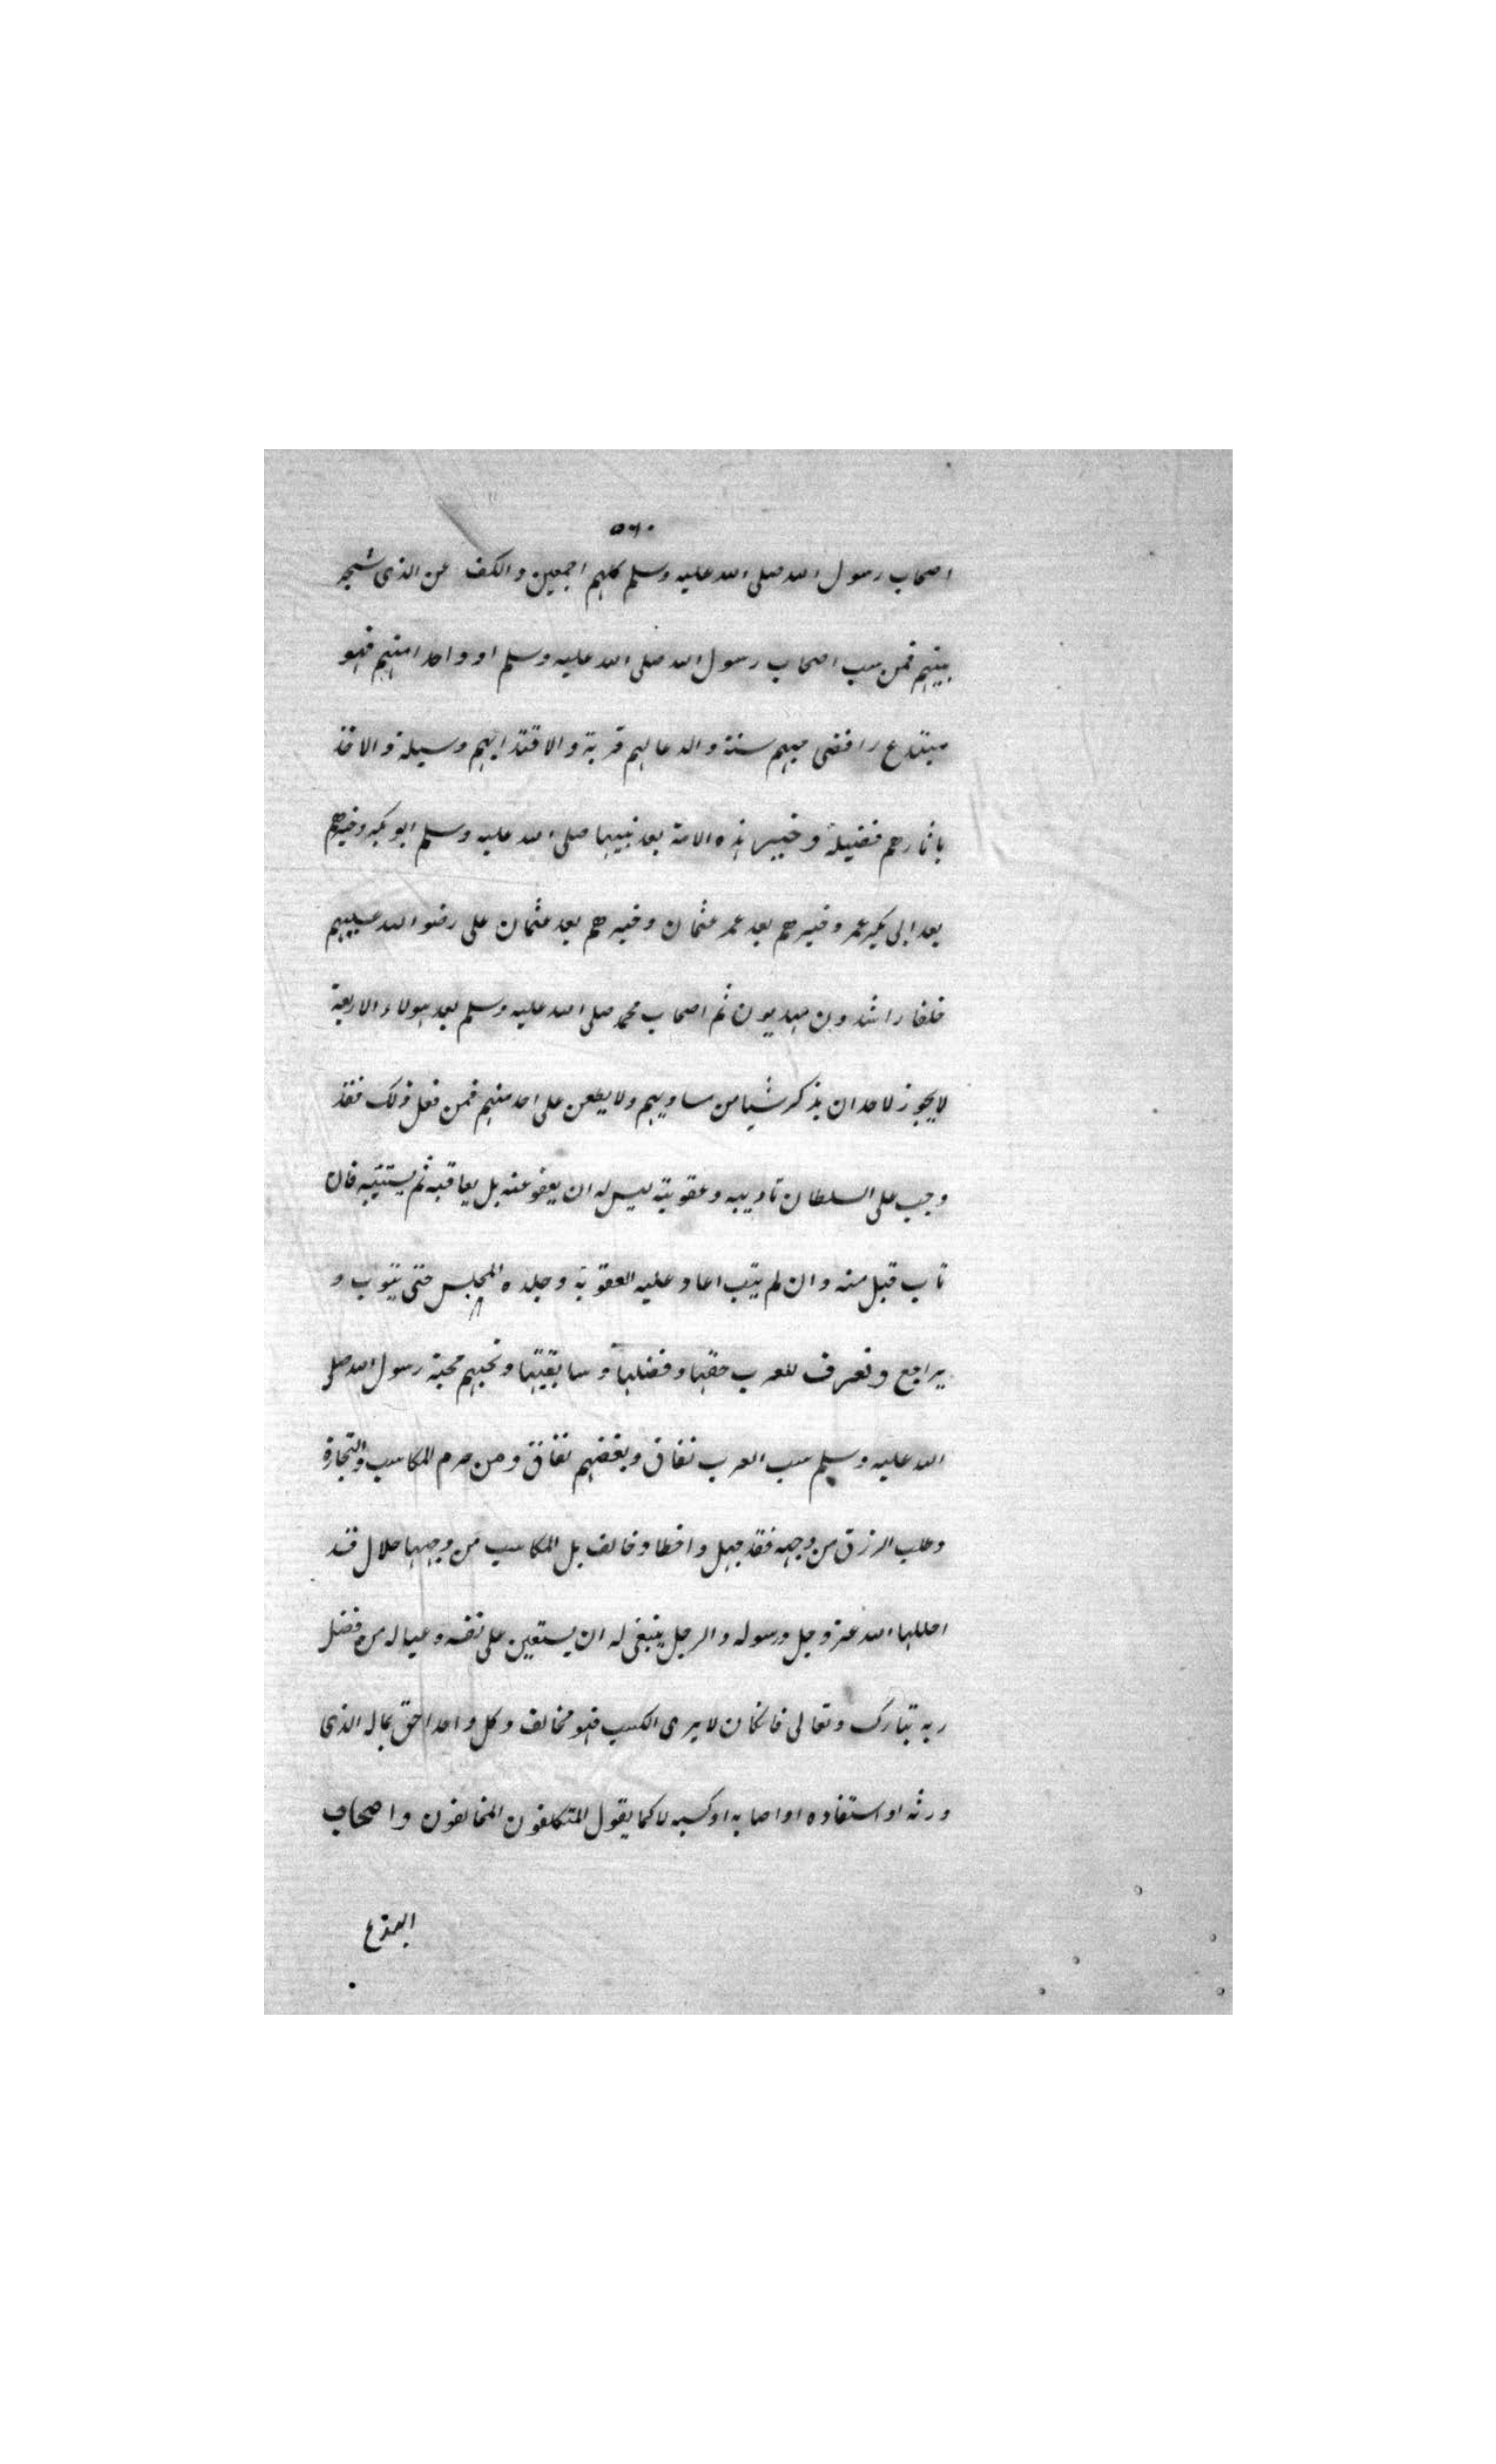 ٥٦٠
اصحاب رسول الله صلى الله عليه وسلم كلهم اجمعين والكف عن الذى شجر
بينهم فمن سب اصحاب رسول الله صلى الله عليه وسلم او واحدا منهم فهو
مبتدع رافضى حبهم سنة والدعا لهم قربة والاقتدا بهم وسيلة والاخذ
باثارهم فضيلة وخير هذه الامة بعد نبيها صلى الله عليه وسلم ابو بكر وخيرهم
بعد ابى بكر عمر وخيرهم بعد عمر عثمان وخيرهم بعد عثمان على رضوا الله عليهم
خلفا راشدون مهديون ثم اصحاب محمد صلى الله عليه وسلم بعد هولاء الاربعة
لا يجوز لاحد ان يذكر شيا من مساويهم ولا يطعن على احد منهم فمن فعل ذلك فقد
وجب على السلطان تاديبه وعقوبته ليس له ان يعفو عنه بل يعاقبه ثم يستتيبه فان
تاب قبل منه وان لم يتب اعاد عليه العقوبة وجلده المجلس حتى يتوب و
يراجع ونعرف للعرب حقها وفضلها وسابقيتها ونحبهم محبة رسول الله صلى
الله عليه وسلم سب العرب نفاق وبغضهم نفاق ومن حرم المكاسب والتجارة
وطلب الرزق من وجهه فقد جهل واخطا وخالف بل المكاسب من وجهها حلال قد
احلها الله عز وجل ورسوله والرجل ينبغى له ان يستعين على نفسه وعياله من فضل
ربه تبارك وتعالى فانكان لا يرى الكسب فهو مخالف وكل واحد احق بماله الذى
ورثه او استفاده او اصابه او كسبه لا كما يقول المتكلفون المخالفون واصحاب
البدع